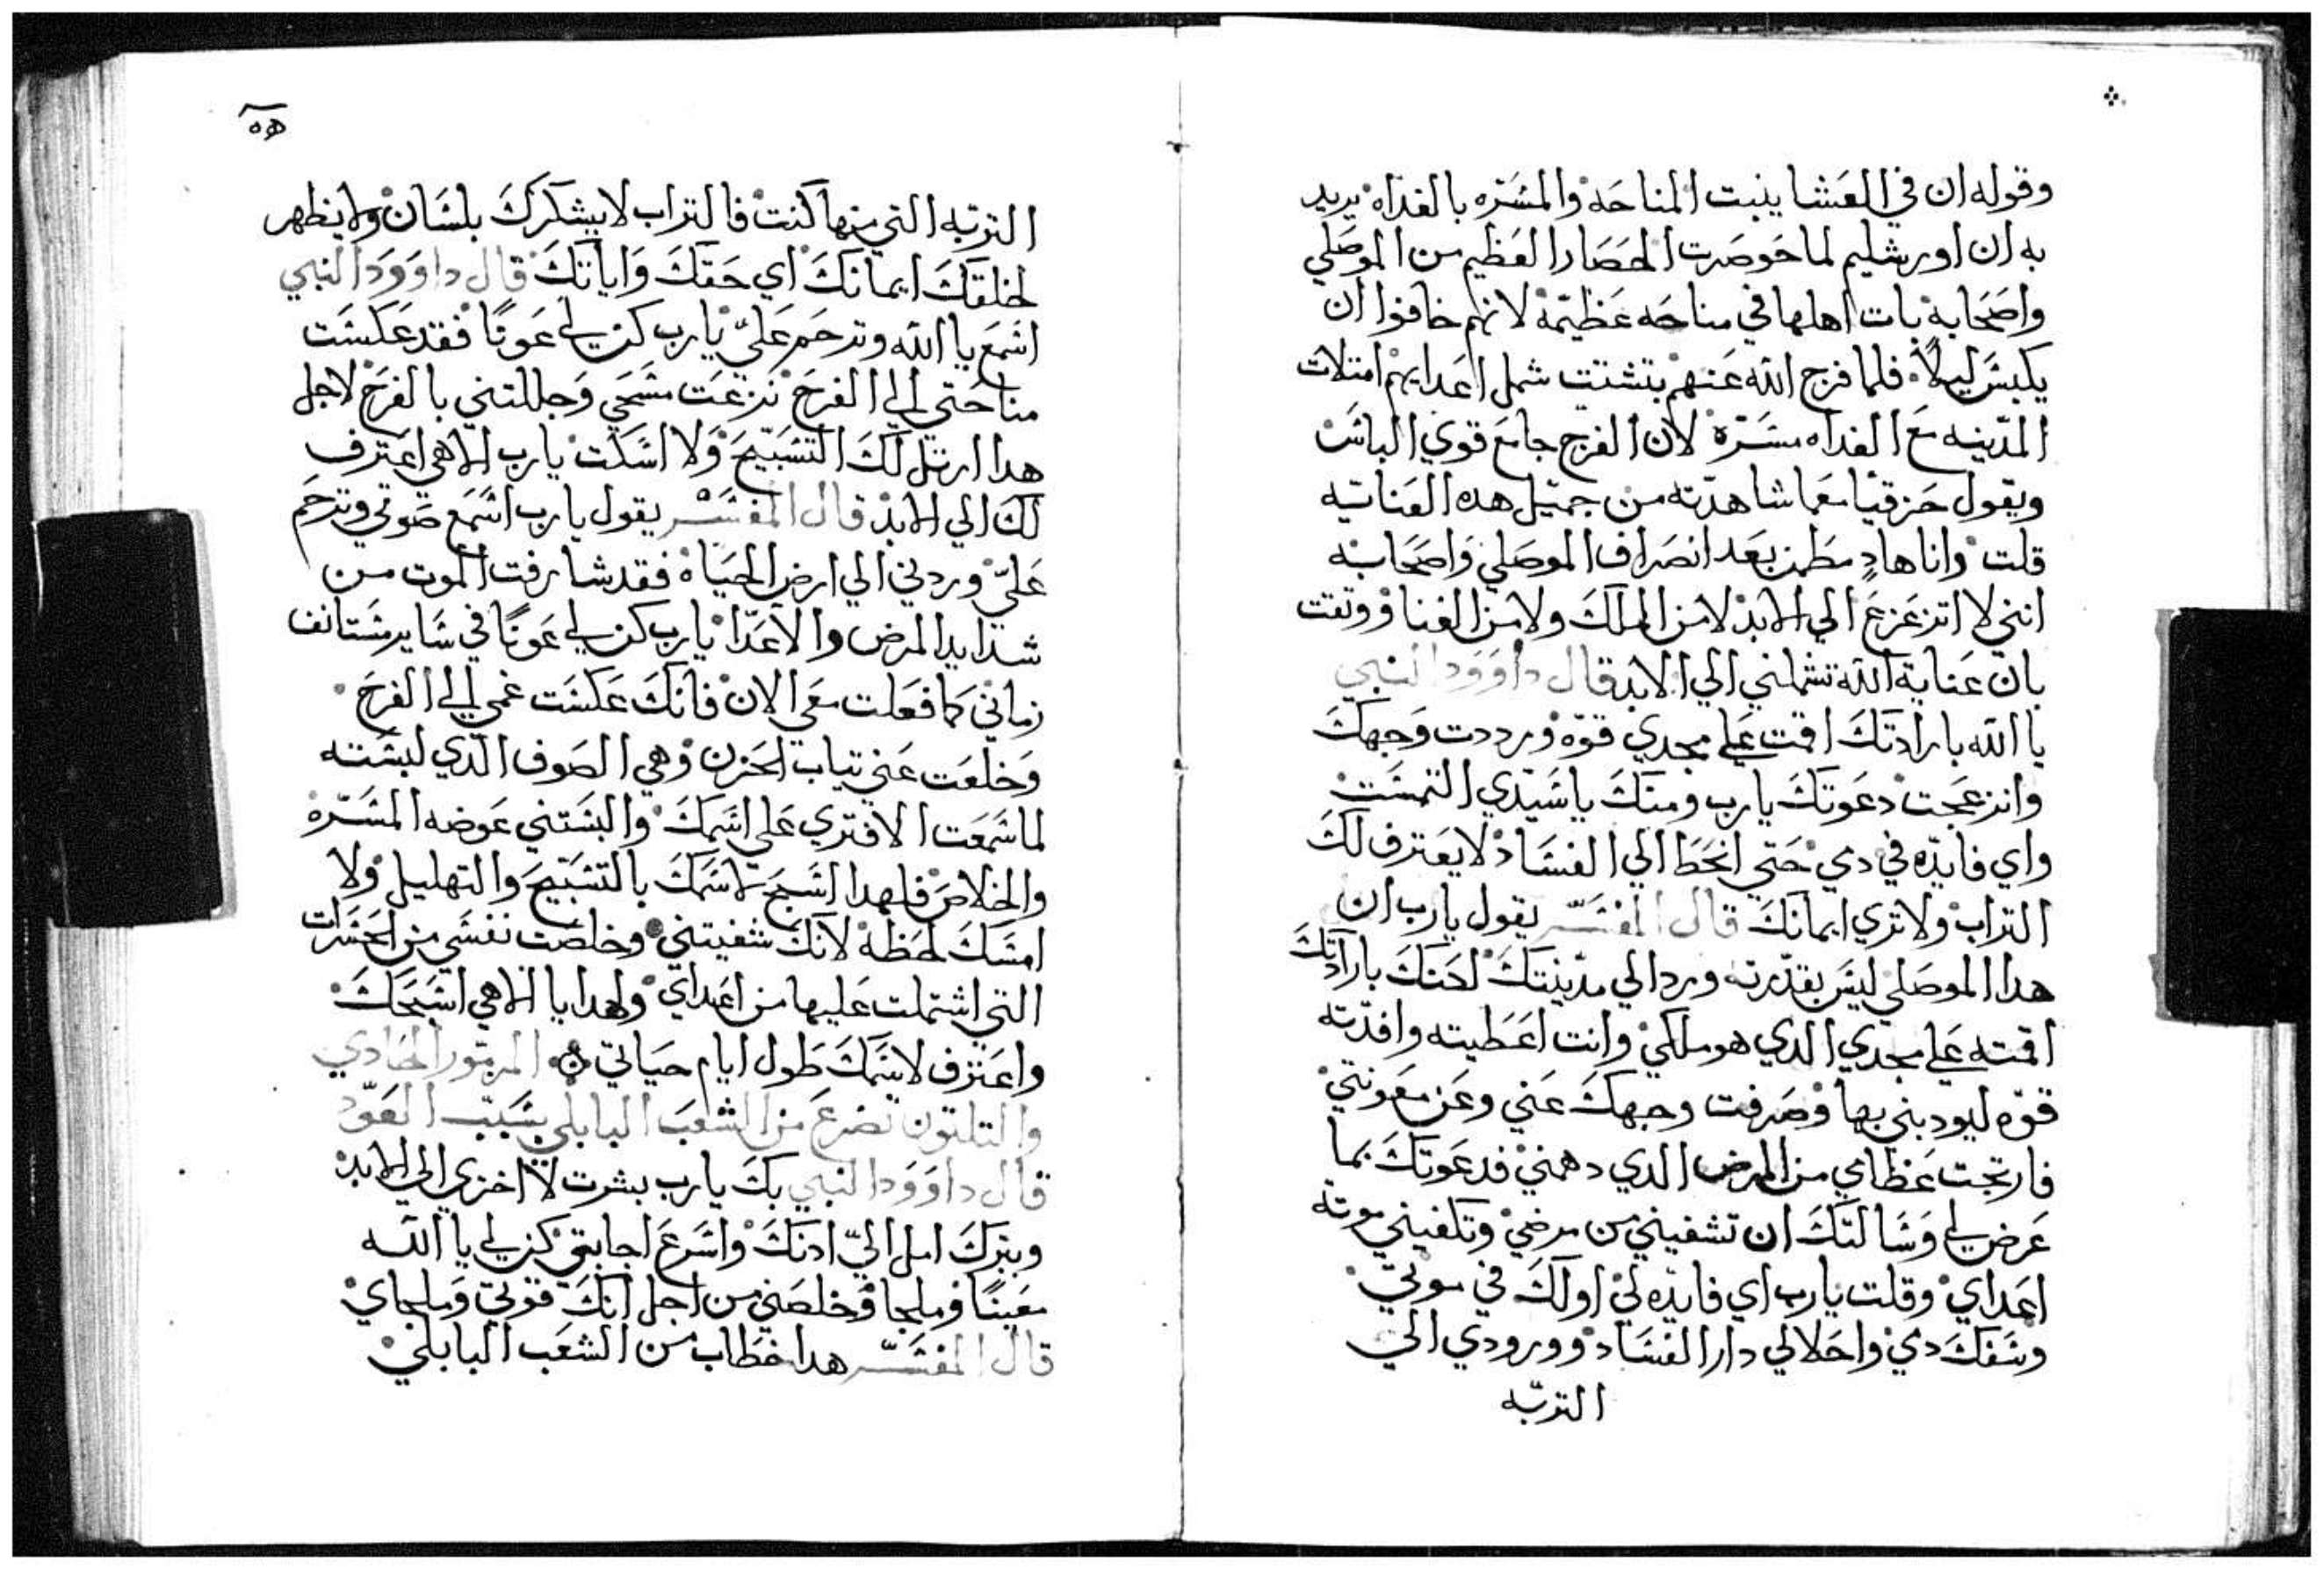 وقوله ان في العشا ينبت المناحه والمسره بالغداه يريد
به ان اورشليم لما حوصرت الحصار العظيم من الموصلي
واصحابه بات اهلها في مناحه عظيمة لانهم خافوا ان
يكبس ليلاً فلما فرج الله عنهم بتشتت شمل اعدايهم امتلات
المدينه مع الغداه مسرة لان الفرج جا مع قوي الباس
ويقول حزقيا معما شاهدته من جميل هده العنايه
قلت وانا هادٍ مطمن بعد انصراف الموصلي واصحابه
انني لا اتزعزع الي الابد لا من الملك ولا من الغنا ووتقت
بان عناية الله تشملني الي الابد قال داوود النبي
يا الله بارادتك اقمت علي مجدي قوة ورددت وجهك
وانزعجت دعوتك يارب ومنك ياسيدي التمست
واي فايده في دمي حتي انحط الي الفساد لا يعترف لك
التراب ولا تري ايمانك قال المفسر يقول يارب ان
هدا الموصلي ليس بقدرته ورد الي مدينتك لكنك بارادتك
اقمته علي مجدي الدي هو ملكي وانت اعطيته وافدته
قوه ليودبني بها وصرفت وجهك عني وعن معونتي
فارتجت عظامي من المرض الدي دهمني فدعوتك بما
عرض لي وسالتك ان تشفيني من مرضي وتكفيني مونة
اعداي وقلت يارب اي فايده لي اولك في موتي
وسفك دمي واحلالي دار الفساد وورودي الي
التربه
٥٥
التربه التي منها كنت فالتراب لا يشكرك بلسان ولا يظهر
لخلقك ايمانك اي حقك واياتك قال داوود النبي
اسمع يا الله وترحم علي يارب كن لي عونًا فقد عكست
مناحتي الي الفرح نزعت مسحي وجللتني بالفرح لاجل
هدا ارتل لك التسبيح ولا اسكت يارب الاهي اعترف
لك الي الابد قال المفسر يقول يارب اسمع صوتي وترحم
علي وردني الي ارض الحياة فقد شارفت الموت من
شدايد المرض والاعدا يارب كن لي عونًا في ساير مستانف
زماني كما فعلت معي الان فانك عكست غمي الي الفرح
وخلعت عني تياب الحزن وهي الصوف الدي لبسته
لما سمعت الافتري علي اسمك والبستني عوضه المسرة
والخلاص فلهدا اسبح لاسمك بالتسبيح والتهليل ولا
امسك لحظة لانك شفيتني وخلصت نفسي من الحسرات
التي اشتملت عليها من اعداي ولهدا يا الاهي اسبحك
واعترف لاسمك طول ايام حياتي المزمور الحادي
والتلتون تضرع من الشعب البابلي بسبب العود
قال داوود النبي بك يارب بشرت لا اخزي الي الابد
وببرك امل الي ادنك واسرع اجابتي كن لي يا الله
معينًا وملجا وخلصني من اجل انك قوتي وملجاي
قال المفسر هدا خطاب من الشعب البابلي